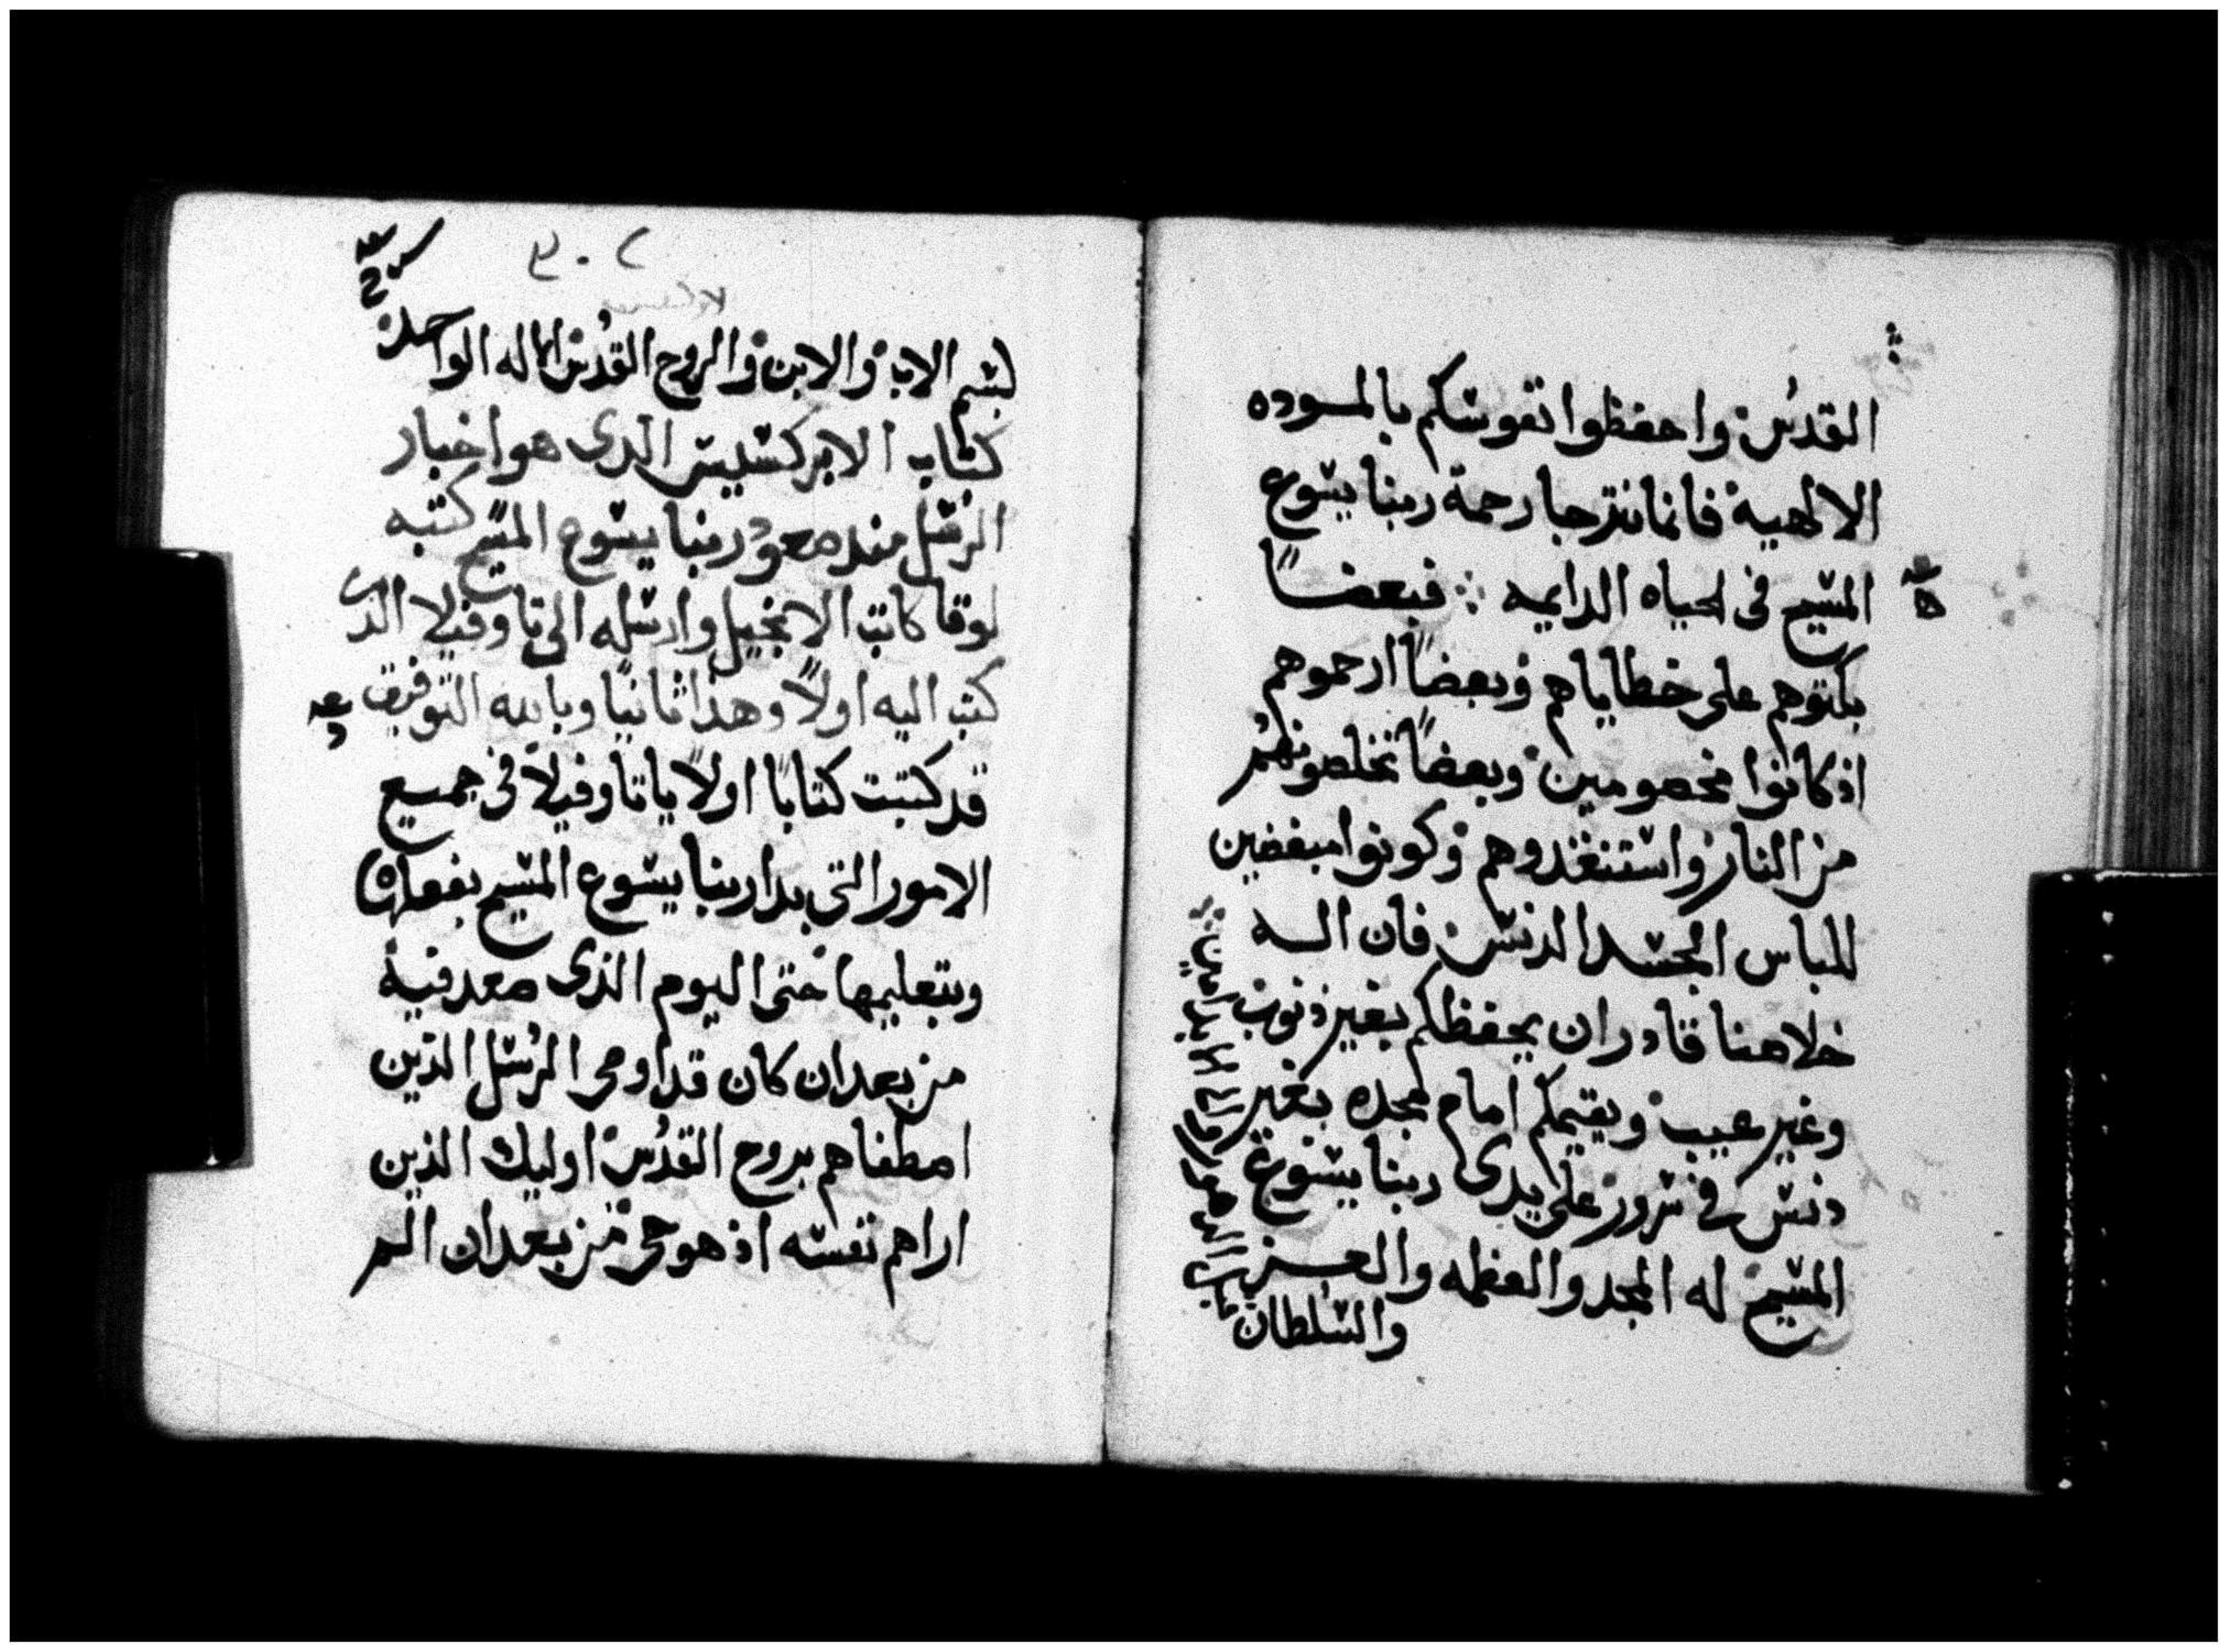 القدس واحفظوا نفوسكم بالموده
الالهية فاننا نترجا رحمة ربنا يسوع
المسيح فى الحياه الدايمه ∴ فبعضاً
بكتوهم على خطاياهم وبعضاً ارحموهم
اذ كانوا مخصومين وبعضاً تخلصونهم
من النار واستنغذوهم وكونوا مبغضين
للباس الجسد الدنس فان الله
خلاصنا قادر ان يحفظكم بغير ذنوب
وغير عيب ويقيمكم امام مجده بغير
دنس فى سرور على يدى ربنا يسوع
المسيح له المجد والعظمه والعز
والسلطان
بسم الاب والابن والروح القدس الاله الواحد
كتاب الابركسيس الدى هو اخبار
الرسل مند صعود ربنا يسوع المسيح كتبه
لوقا كاتب الانجيل وارسله الى تاوفيلا الدى
كتب اليه اولاً وهذا ثانيًا وبالله التوفيق
قد كتبت كتابًا اولاً ياتاوفيلا فى جميع
الامور التى بدا ربنا يسوع المسيح بفعلها
وبتعليمها حتى اليوم الذى صعد فيه
من بعد ان كان قد اوصى الرسل الذين
اصطفاهم بروح القدس اوليك الذين
اراهم نفسه اذ هو حى من بعد ان الم